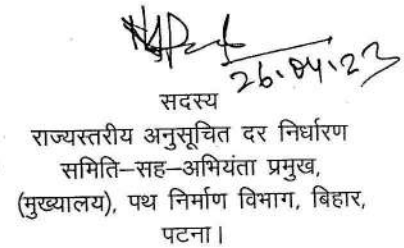 26.04.23
सदस्य
राज्यस्तरीय अनुसूचित दर निर्धारण
समिति–सह–अभियंता प्रमुख,
(मुख्यालय), पथ निर्माण विभाग, बिहार,
पटना।